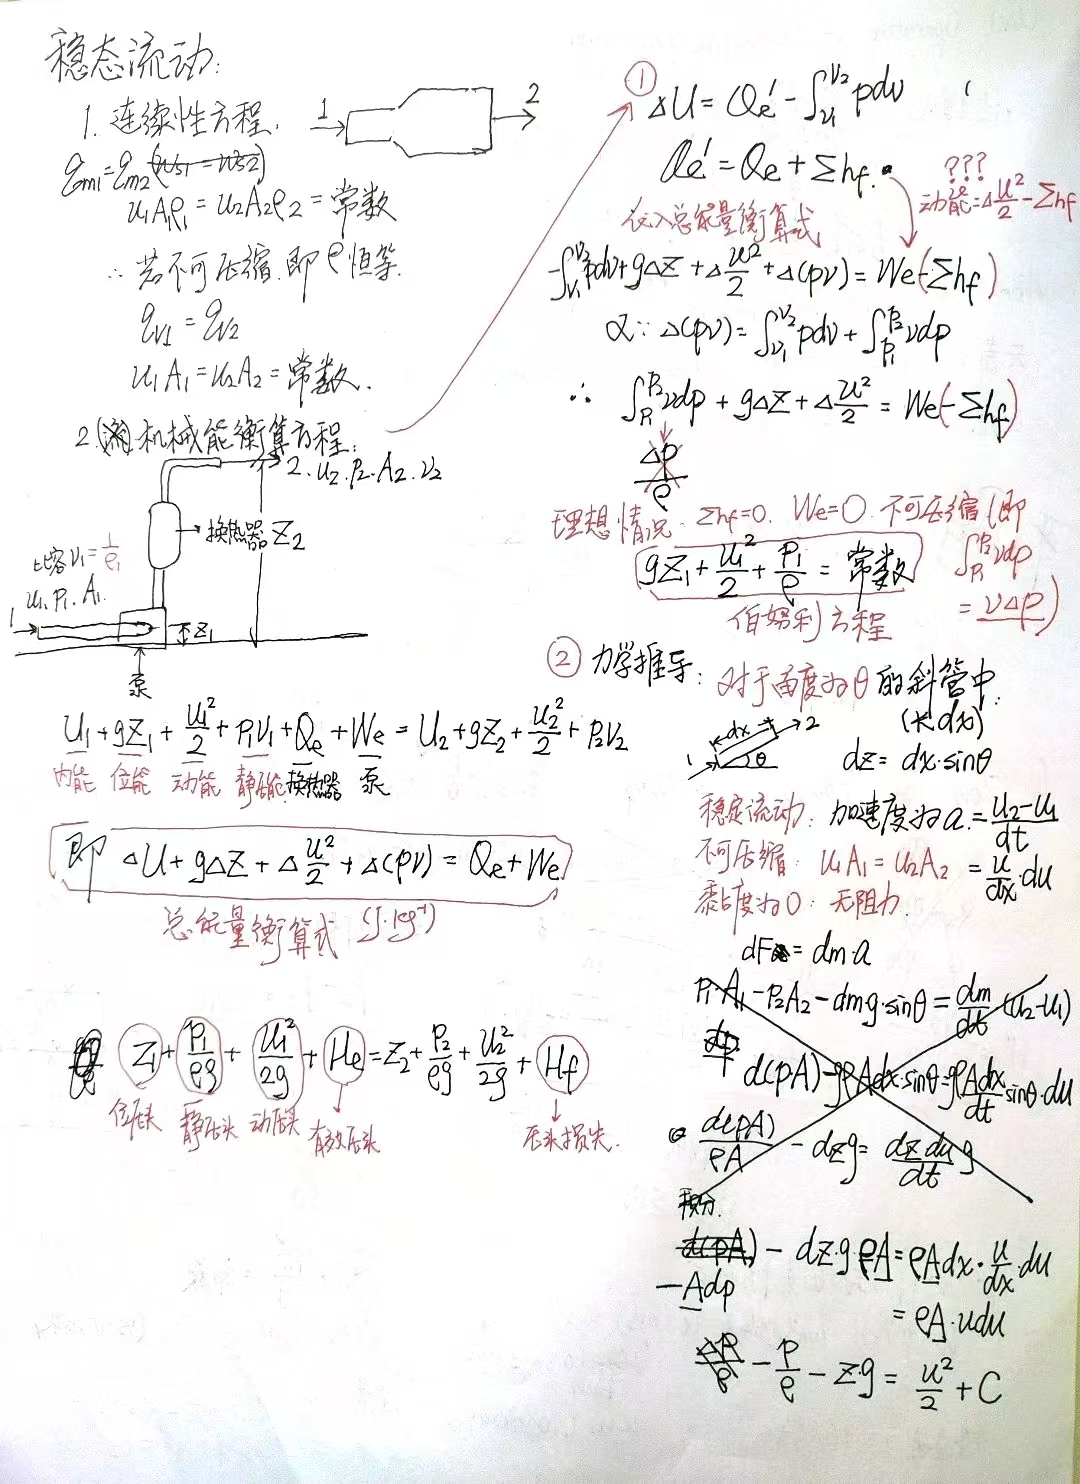 稳态流动:
1. 连续性方程.
1 2
qm1=qm2 (ws1=ws2)
u1A1ρ1=u2A2ρ2=常数
∴ 若不可压缩.即ρ恒等.
qv1=qv2
u1A1=u2A2=常数.
2. 机械能衡算方程:
2. u2. p2. A2. v2
换热器 Z2
比容v1=1/ρ1
u1. p1. A1.
1 Z1
泵
U1+gZ1+u1²/2+p1v1+Qe+We=U2+gZ2+u2²/2+p2v2
内能 位能 动能 静压能 换热器 泵
即 ΔU+gΔZ+Δu²/2+Δ(pv)=Qe+We
总能量衡算式 (J·kg⁻¹)
Z1+p1/ρg+u1²/2g+He=Z2+p2/ρg+u2²/2g+Hf
位压头 静压头 动压头 有效压头 压头损失.
① ΔU=Qe'-∫v1v2 pdv
Qe'=Qe+Σhf.
???
动能=Δu²/2-Σhf
代入总能量衡算式
-∫v1v2 pdv+gΔZ+Δu²/2+Δ(pv)=We(-Σhf)
又∵ Δ(pv)=∫v1v2 pdv+∫p1p2 vdp
∴ ∫p1p2 vdp+gΔZ+Δu²/2=We(-Σhf)
Δp/ρ
理想情况. Σhf=0. We=0. 不可压缩(即
∫p1p2 vdp
=vΔp)
gZ1+u1²/2+p1/ρ=常数
伯努利方程
② 力学推导: 对于角度为θ的斜管中.
(长dx)
dx 2
1 θ
dz=dx·sinθ
稳定流动: 加速度为a=u2-u1/dt
不可压缩: u1A1=u2A2 =u/dx·du
黏度为0: 无阻力.
dF=dm·a
p1·A1-p2A2-dmg·sinθ=dm/dt(u2-u1)
d(pA)-gρAdx·sinθ=gρAdx/dt sinθ·du
d(pA)/ρA-dzg=dzdu/dt g
积分.
d(pA)-dz·g·ρA=ρAdx·u/dx·du
-Adp
=ρA·udu
Δp/ρ -p/ρ-z·g=u²/2+C